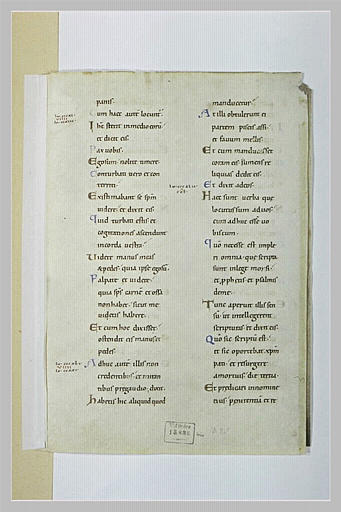 panis.
Cum haec aute locunt.
Ihs stetit in medio eoru
et dicit eis.
Pax vobis.
Ego sum nolite timere.
Conturbati vero et con
territi.
Existimabant se spm
videre. et dixit eis.
Quid turbati estis et
cogitationes ascendunt
in corda vestra.
Videte manus meas
et pedes. quia ipse ego su.
Palpate et videte.
quia sps carne et ossa
non habet. sicut me
videtis habere.
Et cum hoc dixisset.
ostendit eis manus et
pedes.
Adhuc aute illis non
credentibus et miran
tibus pre gaudio. dixit.
Habetis hic aliquid quod
manducetur.
At illi obtulerunt ei
partem piscis assi.
et favum mellis.
Et cum manducasset
coram eis. sumens re
liquias dedit eis.
Et dixit ad eos.
Haec sunt verba que
locutus sum ad vos.
cum adhuc esse vo
biscum.
Quo necesse est imple
ri omnia. que scripta
sunt in lege moysi.
et pphetis et psalmis
de me.
Tunc aperuit illis sen
su. ut intellegerent
scripturas. et dixit eis.
Quo sic scriptu est.
et sic oportebat xpm
pati. et resurgere
a mortuis die tertia.
Et predicari in nomine
eius penitentia et re